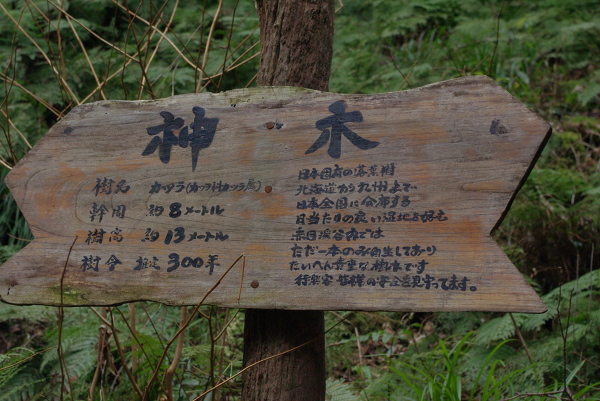 神木
樹名 カツラ(カツラ科カツラ属)
幹周 約8メートル
樹高 約13メートル
樹令 推定300年
日本国内の落葉樹
北海道から九州まで、
日本全国に分布する
日当たりの良い湿地を好む
赤目渓谷内では
ただ一本のみ自生しており
たいへん貴重な樹木です
行楽客皆様の安全を見守ってます。